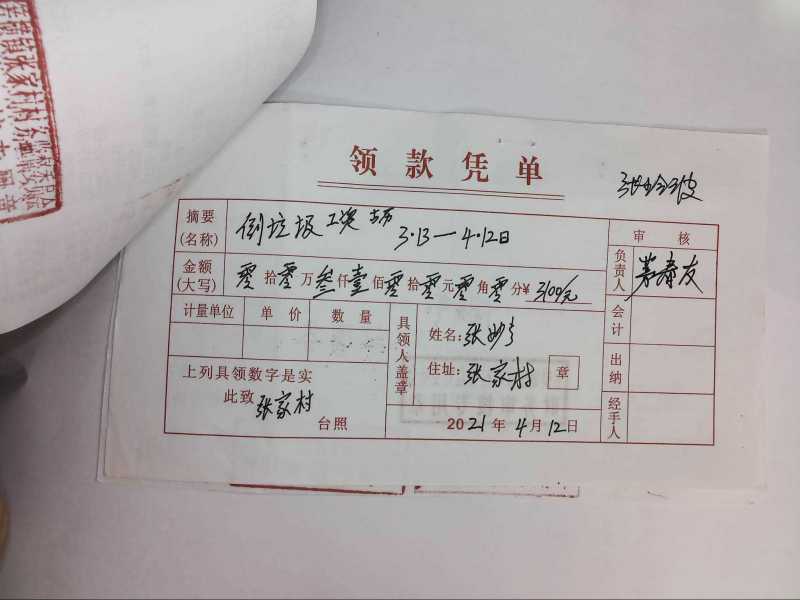 领款凭单
摘要(名称) 倒垃圾工资 3.13—4.12日
审核
金额(大写) 零拾零万叁仟壹佰零拾零元零角零分¥3100元
负责人 茅春友
计量单位 单价 数量
会计
具领人盖章
姓名:张妙
住址:张家村 章
出纳
上列具领数字是实
此致 张家村
台照
2021年4月12日
经手人